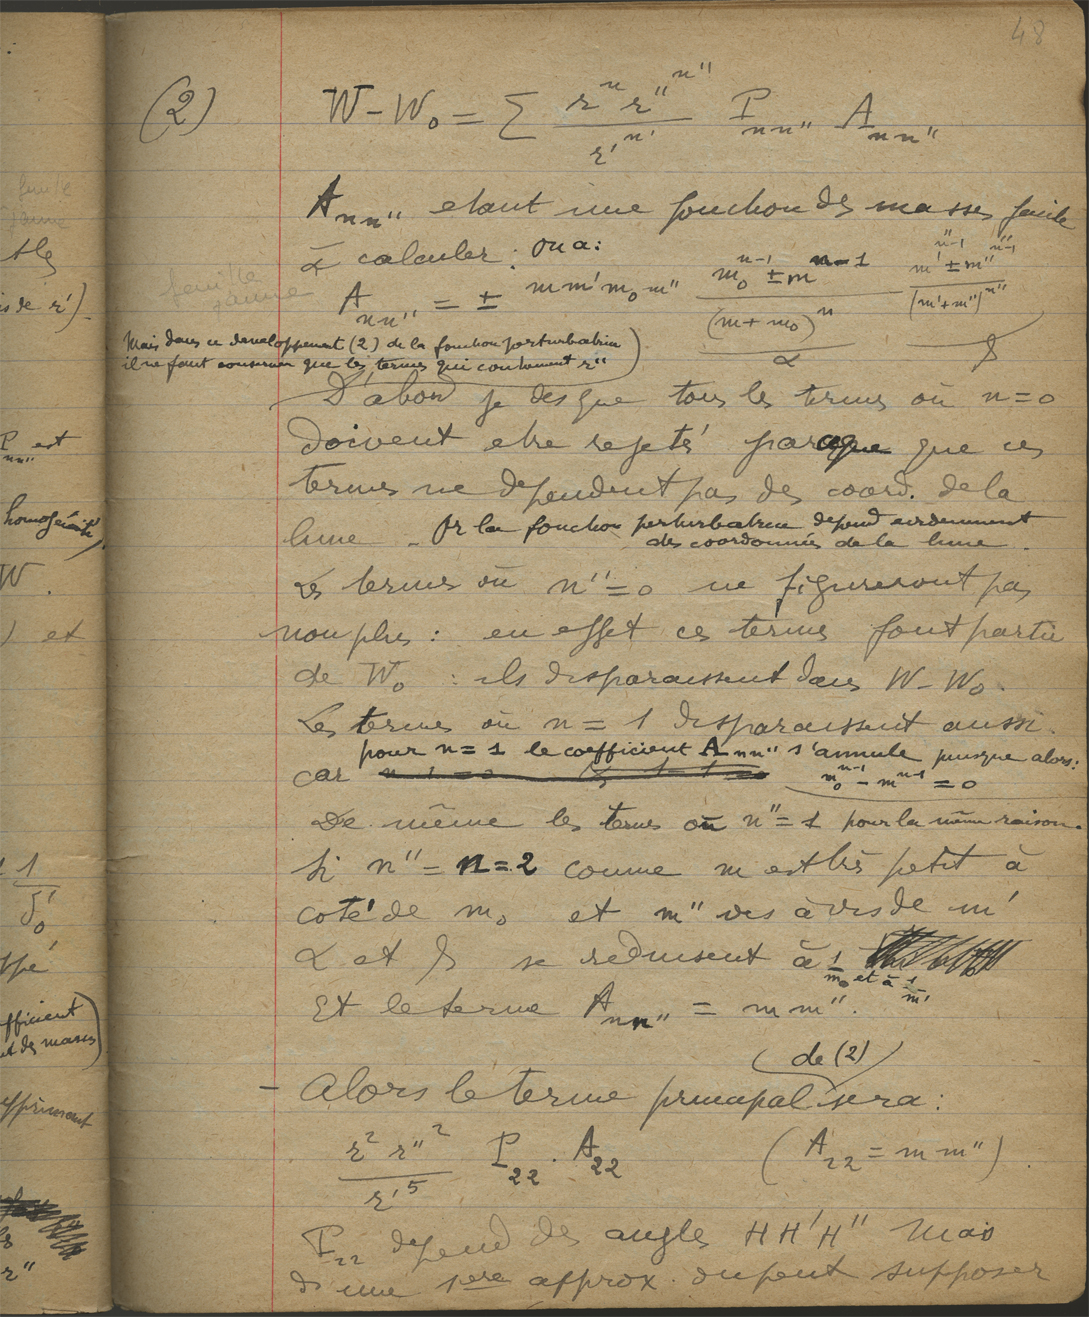 48
(2) W - W₀ = Σ r^n r''^n'' / r'^n' P_nn'' A_nn''
A_nn'' etant une fonction des masses facile
à calculer : on a :
A_nn'' = ± m m' m₀ m'' (m₀^n-1 ± m^n-1) / (m+m₀)^n (m'^n''-1 ± m''^n''-1) / (m'+m'')^n''
α β
feuille
jaune
Mais dans ce developpement (2) de la fonction perturbatrice
il ne faut conserver que les termes qui contiennent r''
D'abord je dis que tous les termes où n = 0
doivent etre rejeté parceque que ces
termes ne dependent pas des coord. de la
lune . Or la fonction perturbatrice depend evidemment
des coordonnées de la lune .
Les termes où n'' = 0 ne figureront pas
non plus : en effet ces termes font partie
de W₀ : ils disparaissent dans W - W₀.
Les termes où n = 1 disparaissent aussi.
car pour n = 1 le coefficient A_nn'' s'annule puisque alors :
m₀^n-1 - m^n-1 = 0
De même les termes où n'' = 1 pour la même raison.
Si n'' = n = 2 comme m est très petit à
coté de m₀ et m'' vis à vis de m'
α et β se reduisent à 1/m₀ et à 1/m'
Et le terme A_nn'' = m m''.
de (2)
- Alors le terme principal sera :
r² r''² / r'⁵ P₂₂ . A₂₂ (A₂₂ = m m'') .
P₂₂ depend des angles H H' H'' Mais
ds une 1ere approx. on peut supposer